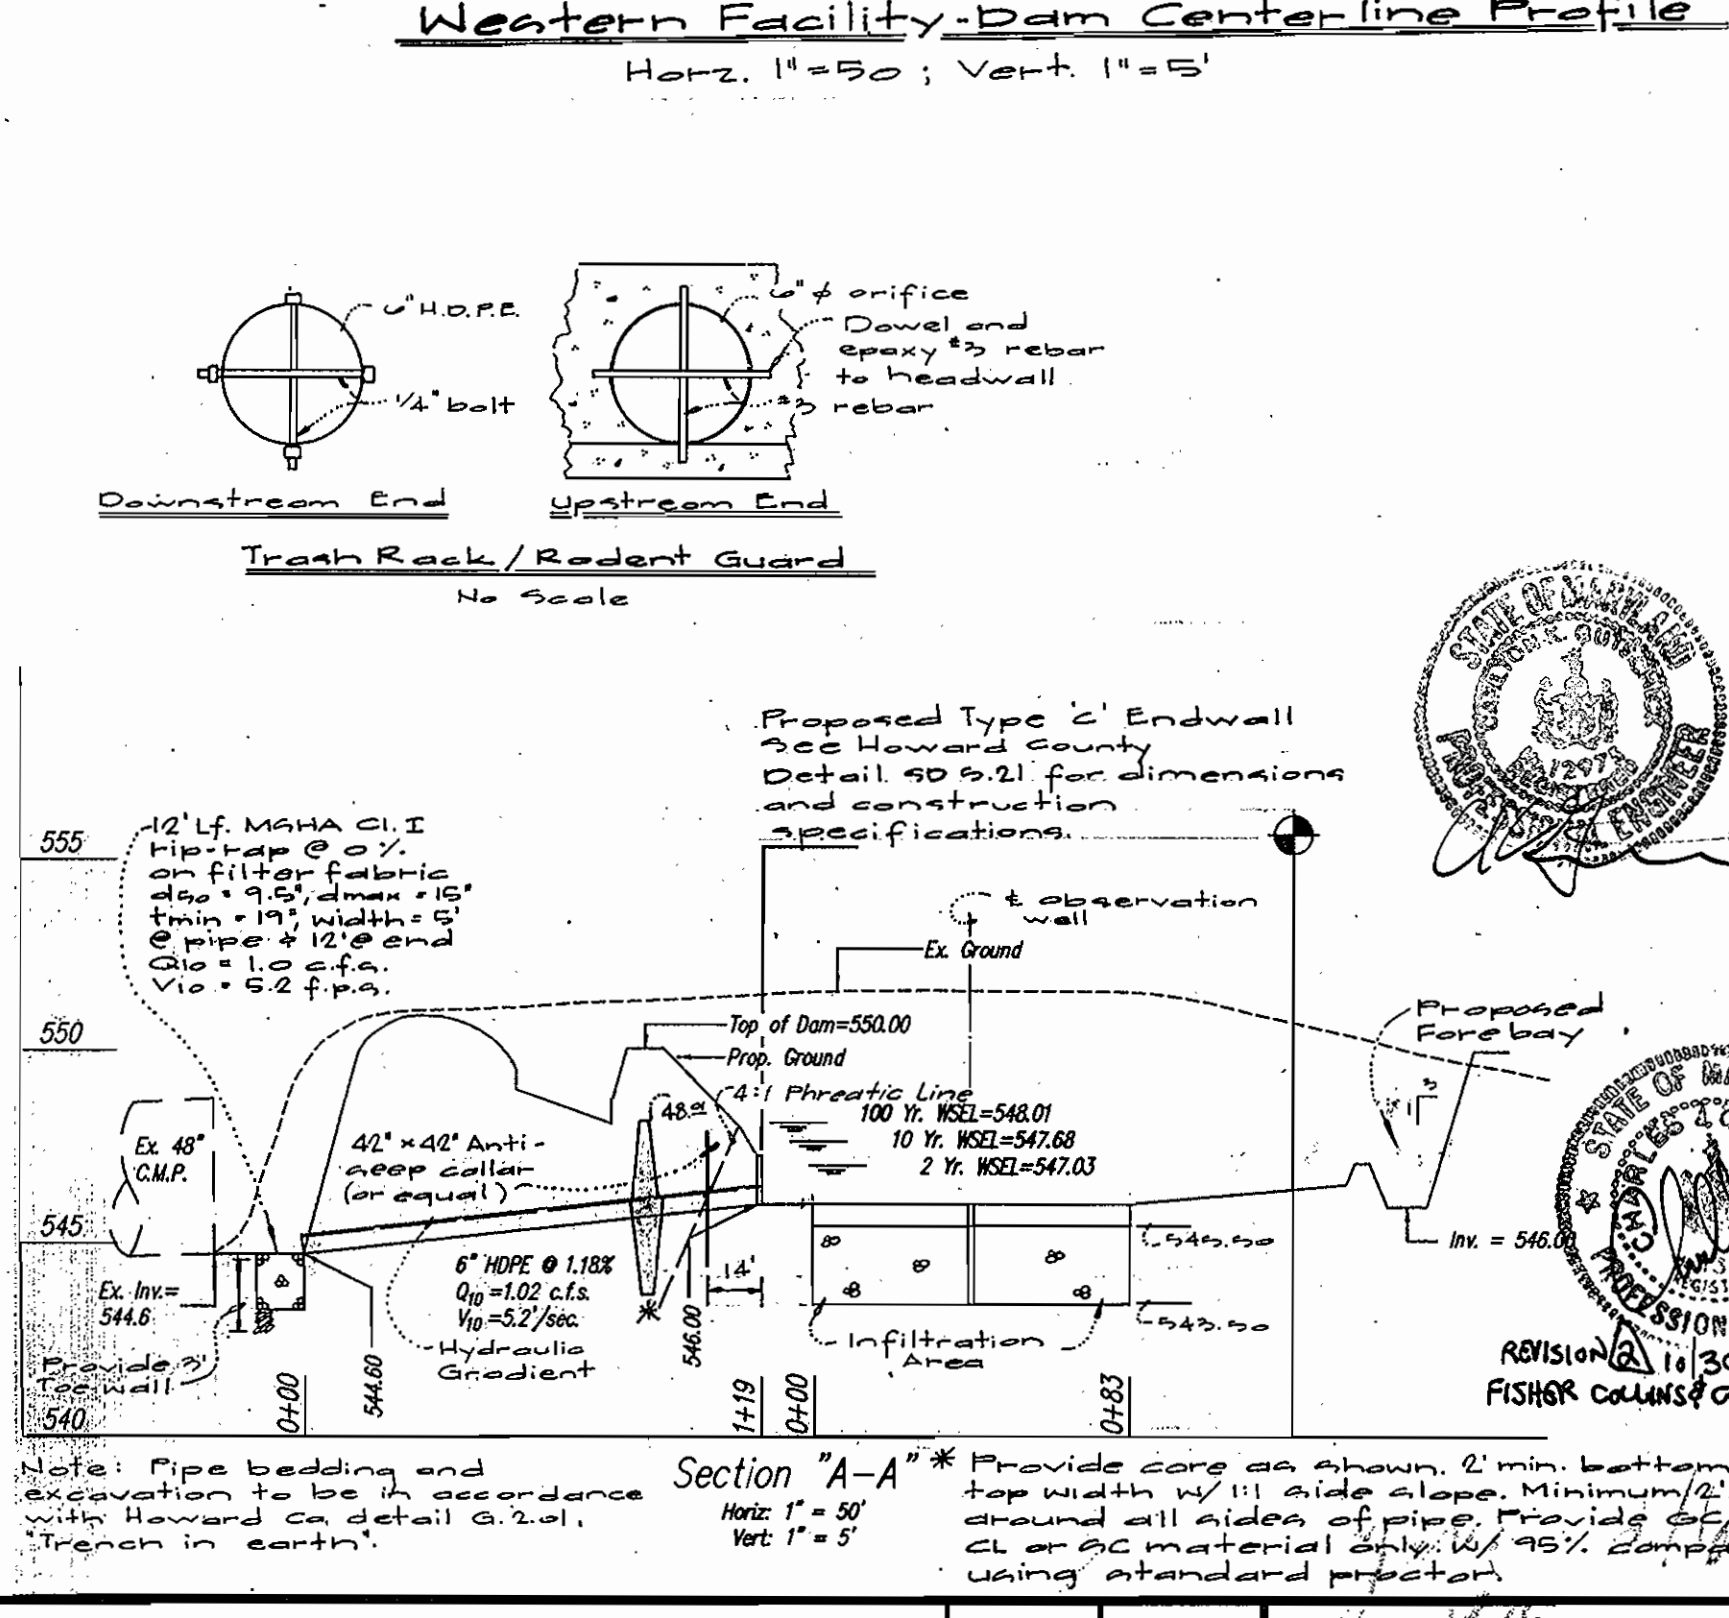 Western Facility-Dam Centerline Profile
Horz. 1"=50 ; Vert. 1"=5'
6" H.D.P.E.
1/4" bolt
6" ϕ orifice
Dowel and
epoxy #3 rebar
to headwall
#3 rebar
Downstream End
Upstream End
Trash Rack/Rodent Guard
No Scale
STATE OF MARYLAND
PROFESSIONAL ENGINEER
Proposed Type 'C' Endwall
See Howard County
Detail SD 5.21 for dimensions
and construction
specifications.
12' Lf. MSHA Cl. I
rip-rap @ 0%
on filter fabric
d50 = 9.5", dmax = 15"
tmin = 19", width = 5'
@ pipe & 12' @ end
Q10 = 1.0 c.f.s.
V10 = 5.2 f.p.s.
555
550
545
540
℄ observation
well
Ex. Ground
Top of Dam=550.00
Prop. Ground
4:1 Phreatic Line
100 Yr. WSEL=548.01
10 Yr. WSEL=547.68
2 Yr. WSEL=547.03
Proposed
Forebay
3
1
Ex. 48"
C.M.P.
42" x 42" Anti-
seep collar
(or equal)
Ex. Inv.=
544.6
6" HDPE @ 1.18%
Q10 =1.02 c.f.s.
V10 =5.2'/sec.
14'
Hydraulic
Gradient
Provide 3'
Toe wall
Infiltration
Area
545.50
543.50
Inv. = 546.00
STATE OF MA
CHARLES
PROFESSION
REVISION 2 10/30
FISHER COLLINS & C
0+00
544.60
546.00
1+19
0+00
0+83
Note: Pipe bedding and
excavation to be in accordance
with Howard Co. detail G.2.01,
"Trench in earth".
Section "A-A"
Horiz: 1" = 50'
Vert: 1" = 5'
* Provide core as shown. 2' min. bottom
top width w/ 1:1 side slope. Minimum 2'
around all sides of pipe. Provide GC,
CL or SC material only w/ 95% compa
using standard proctor.